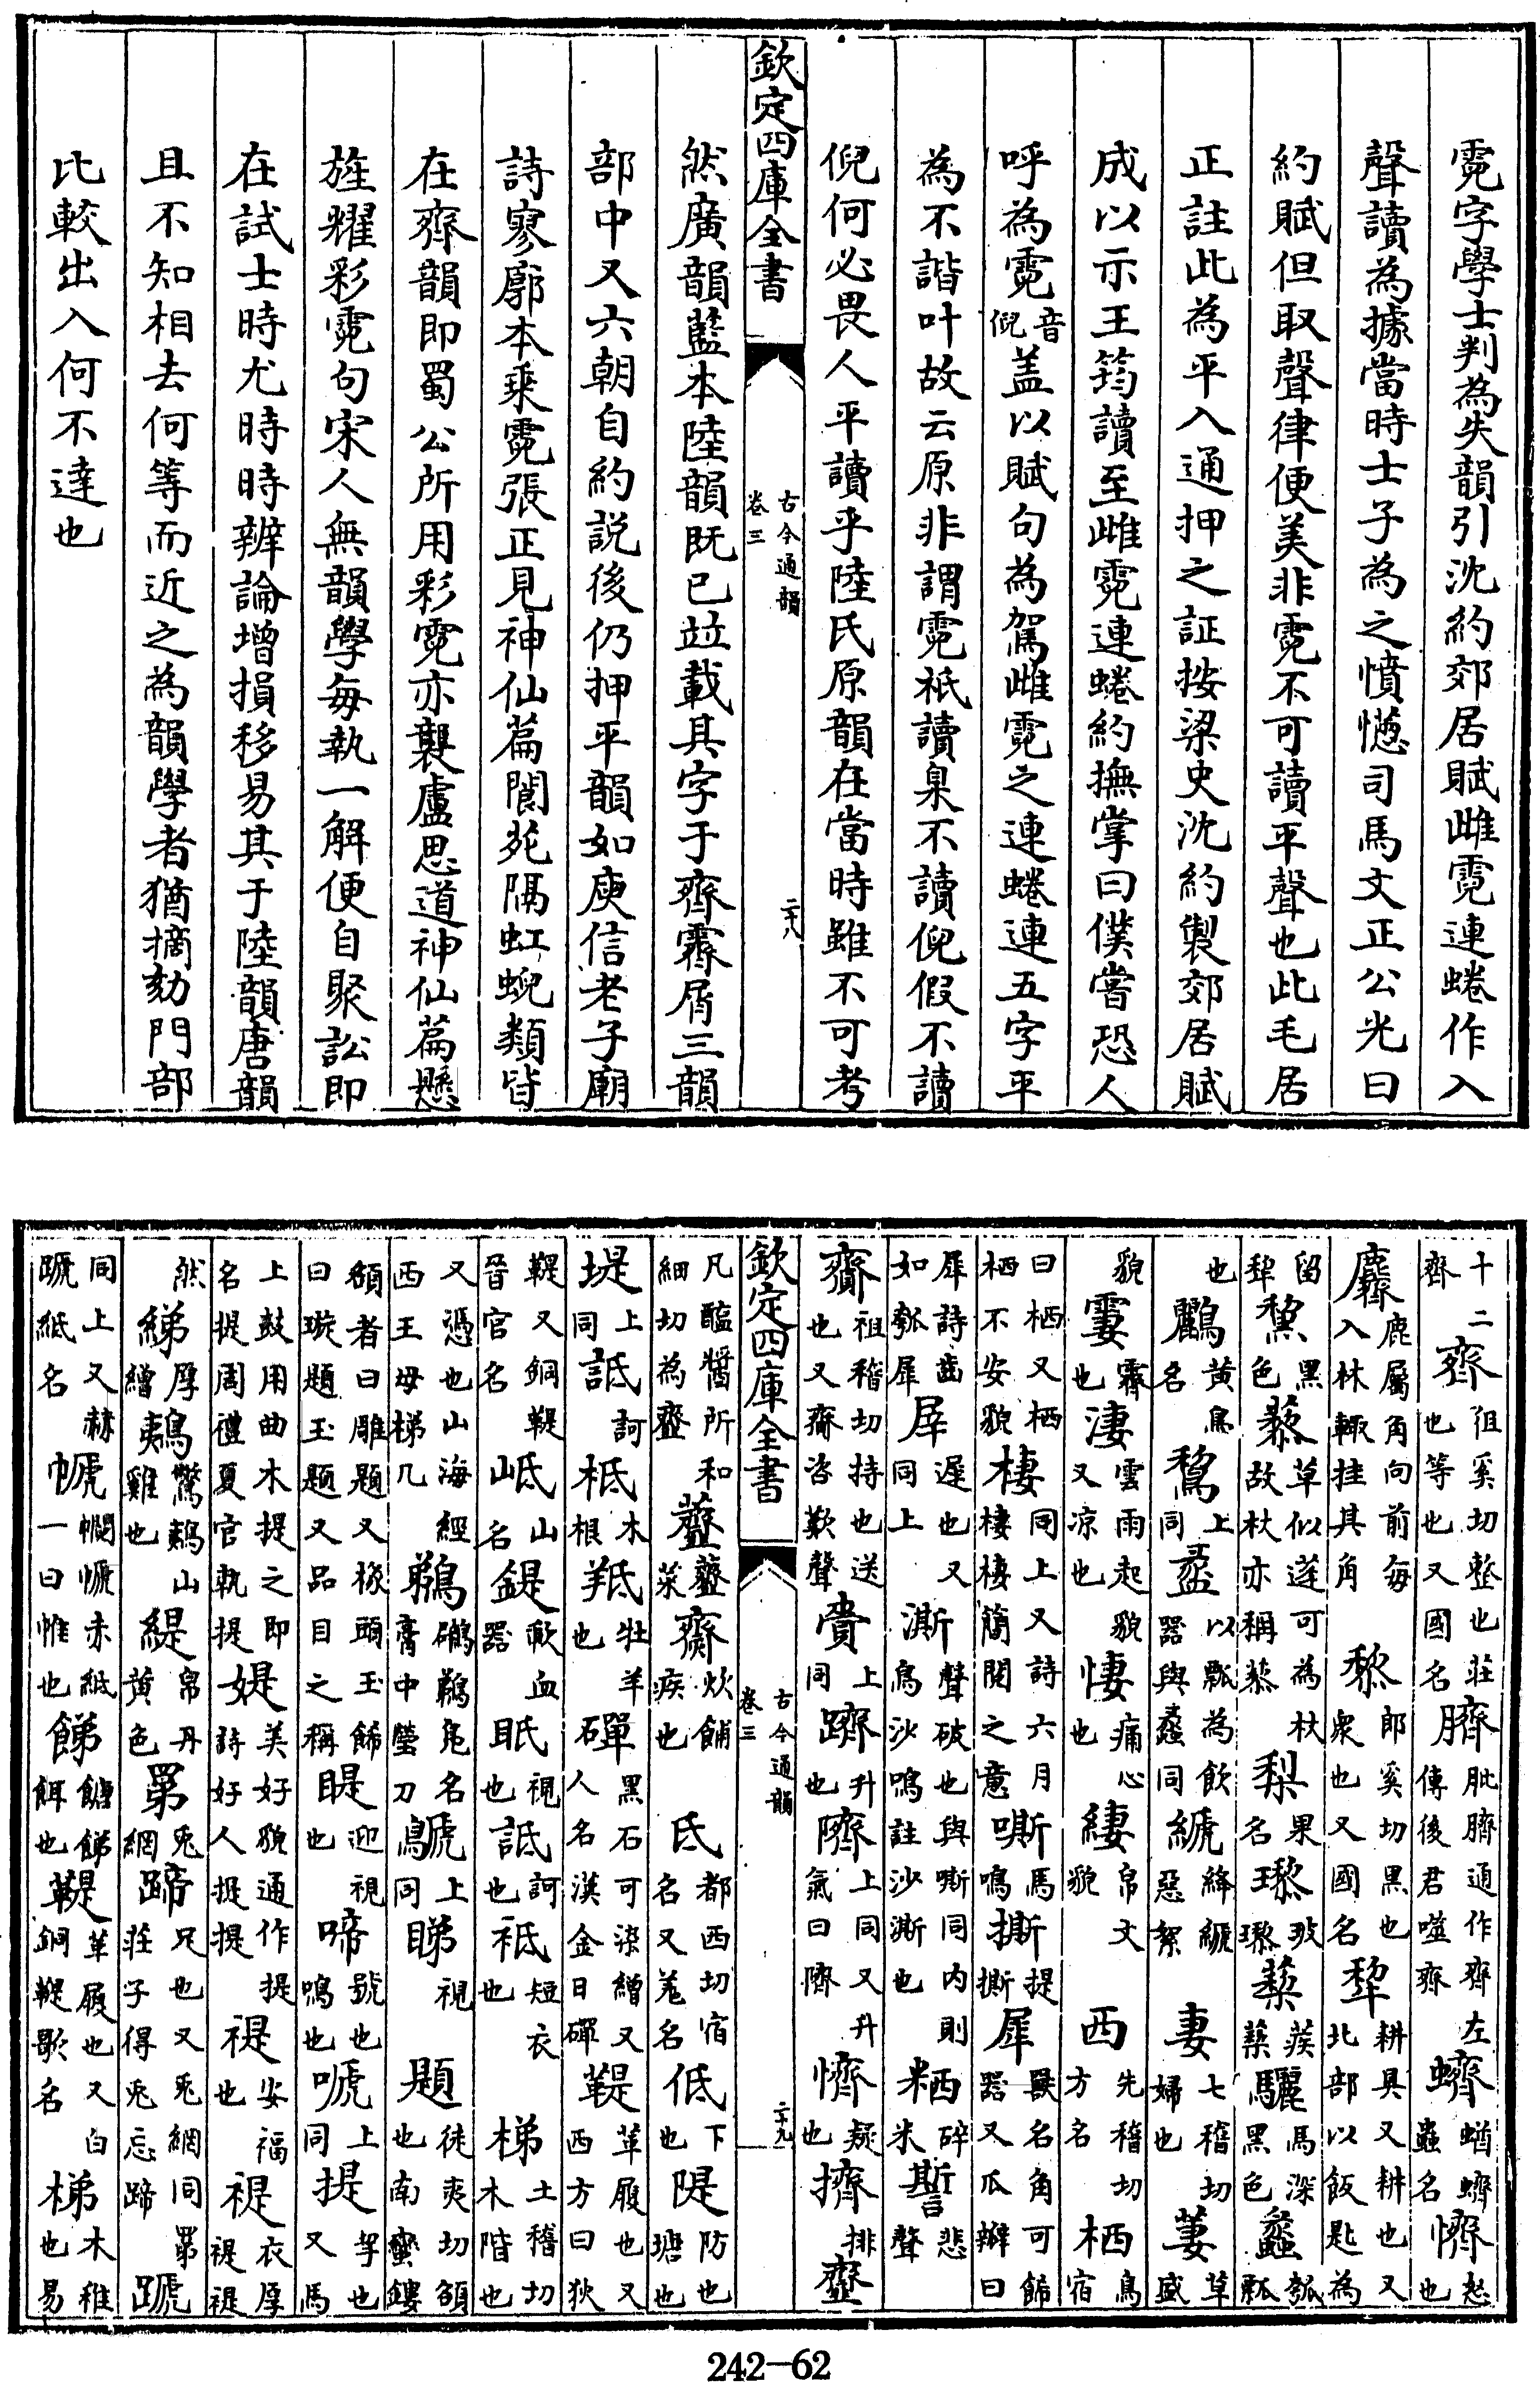 霓字學士判為失韻引沈約郊居賦雌霓連蜷作入
聲讀為據當時士子為之憤懑司馬文正公光曰
約賦但取聲律便美非霓不可讀平聲也此毛居
正註此為平入通押之証按梁史沈約製郊居賦
成以示王筠讀至雌霓連蜷約撫掌曰僕嘗恐人
呼為霓音倪盖以賦句為駕雌霓之連蜷連五字平
為不諧叶故云原非謂霓祇讀臬不讀倪假不讀
倪何必畏人平讀乎陸氏原韻在當時雖不可考
欽定四庫全書 古今通韻 卷三 二十八
然廣韻藍本陸韻既已竝載其字于齊霽屑三韻
部中又六朝自約說後仍押平韻如庾信老子廟
詩寥廓本乘霓張正見神仙篇閬苑隔虹蜺類皆
在齊韻即蜀公所用彩霓亦襲盧思道神仙篇懸
旌耀彩霓句宋人無韻學每執一解便自聚訟即
在試士時尤時時辨論增損移易其于陸韻唐韻
且不知相去何等而近之為韻學者猶摘劾門部
比較出入何不達也
十二齊徂奚切整也莊也等也又國名臍肶臍通作齊左傳後君噬齊蠐蝤蠐蟲名懠怒也
麡鹿屬角向前每入林輙挂其角黎郎奚切黑也衆也又國名犂耕具又耕也又北部以飯匙為
留犂黧黑色藜草似蓬可為杖故杖亦稱藜梨果名瓈玻瓈蔾蒺蔾驪馬深黑色蠡瓠瓢
也鸝黃鳥名鵹上同盠以瓢為飲器與蠡同䌛絳䌛惡絮妻七稽切婦也萋草盛
貌霋霽也淒雲雨起貌又凉也悽痛心也緀帛文貌西先稽切方名栖鳥宿
曰栖又栖栖不安貌棲同上又詩六月棲棲簡閱之意嘶馬鳴撕提撕犀獸名角可飾器又瓜瓣曰
犀詩齒如瓠犀屖遲也又同上澌聲破也與嘶同內則鳥沙鳴註沙澌也粞碎米誓悲聲
齎祖稽切持也送也又齎咨歎聲賷上同躋升也隮上同又升氣曰隮懠疑也擠排齏
欽定四庫全書 古今通韻 卷三 二十九
凡醯醬所和細切為齏虀虀菜齌炊餔疾也氐都西切宿名又羌名低下也隄防也塘也
堤上同詆訶柢木根羝牡羊也磾黑石可染繒又人名漢金日磾鞮革履也又西方曰狄
鞮又銅鞮晉官名岻山名鍉歃血器眡視也詆訶也袛短衣也梯土稽切木階也
又憑也山海經西王母梯几鷉鸊鷉鳧名膏中瑩刀鷈上同睇視題徒奚切頟也南蠻鏤
頟者曰雕題又椽頭玉飾曰璇題玉題又品目之稱睼迎視也啼號也鳴也嗁上同提挈也又馬
上鼓用曲木提之即名提周禮夏官執提媞美好貌通作提詩好人提提禔安福也褆衣厚褆褆
然綈厚繒鶗鷩鶗山雞也緹帛丹黃色罤兎網蹄足也又兎網同罤莊子得兎忘蹄蹏
同上又赫蹏紙名㡗㡗赤紙一曰帷也餙餹餙餌也鞮革履也又白銅鞮歌名梯木稚也易
242—62